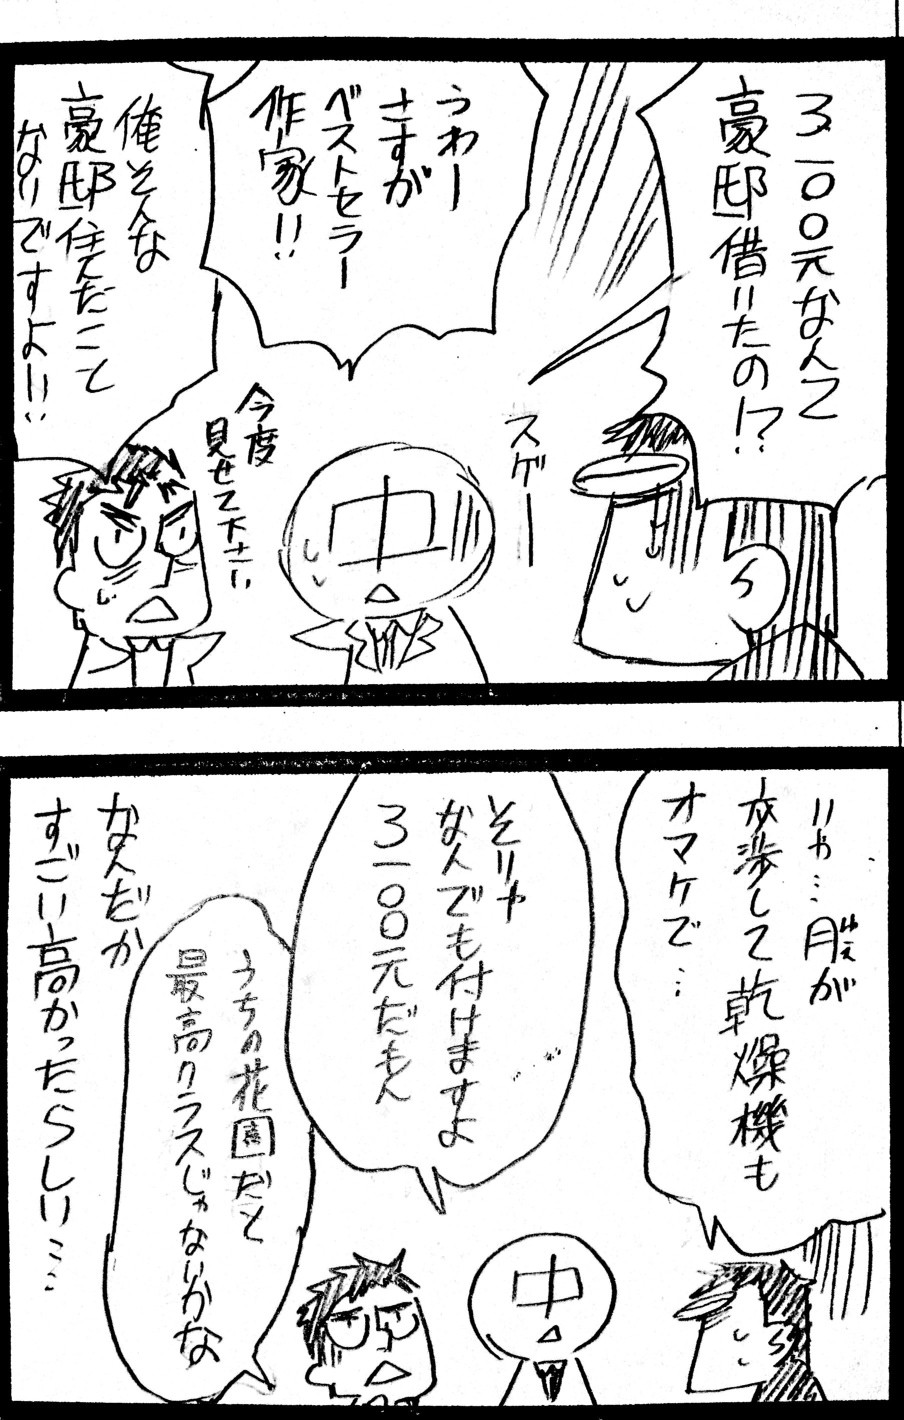 ３１００元なんて
豪邸借りたの!?
うわー
さすが
ベストセラー
作家!!
スゲー
今度
見せて下さい
俺そんな
豪邸住んだこと
ないですよー!!
いや…月xが
交渉して乾燥機も
オマケで…
そりゃ
なんでも付けますよ
３１００元だもん
うちの花園だと
最高クラスじゃないかな
なんだか
すごい高かったらしい…
中
中